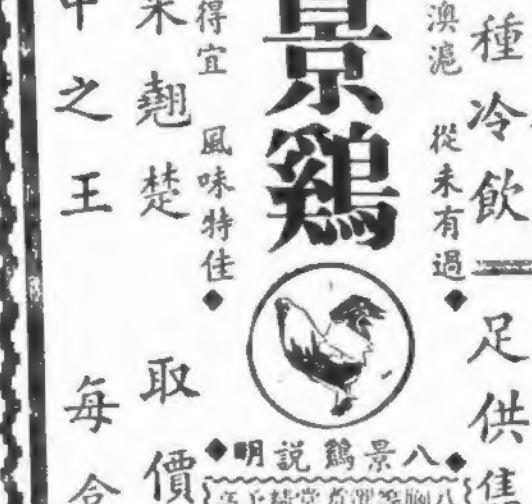 種冷飲
足供售
澳滬 從未有過
景鷄
得宜 風味特佳
翹楚
取價
中之王
每
八景鷄説明